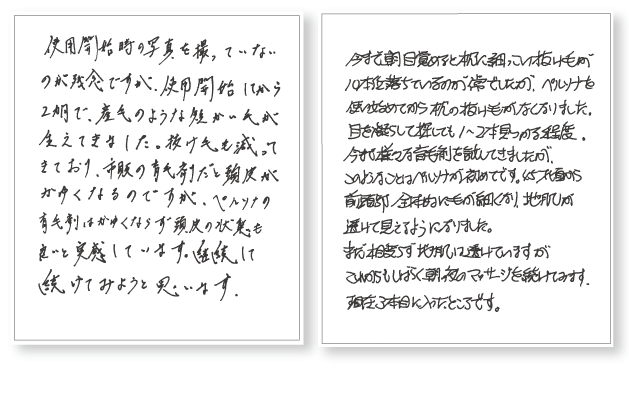 使用開始時の写真を撮っていない
のが残念ですが、使用開始してから
2週で、産毛のような短かい毛が
生えてきました。抜け毛も減って
きており、市販の育毛剤だと頭皮が
かゆくなるのですが、ペルソナの
育毛剤はかゆくならず頭皮の状態も
良いと実感しています。継続して
続けてみようと思います。
今まで朝目覚めると枕に細っこい抜け毛が
10本位落ちているのが常でしたが、ペルソナを
使い始めてから枕の抜け毛がなくなりました。
目を凝らして探しても1〜2本見つかる程度。
今まで様々な育毛剤を試してきましたが、
このようなことはペルソナが初めてです。
前頭部、全体的に毛が細くなり、地肌が
透けて見えるようになりました。
まだ相変らず地肌は透けていますが
これからもしばらく朝夜のマッサージを続けてみます。
現在3本目に入ったところです。